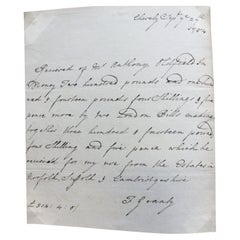 Received of Mr Anthony Oldfield In
Money Two hundred pounds and one hund
red & fourteen pounds four Shillings &
pence more by two London Bills making
together three hundred & fourteen pound
four Shilling and five pence which he
received for my use from the Estates in
Norfolk Suffolk & Cambridgeshire
£314: 4: 5